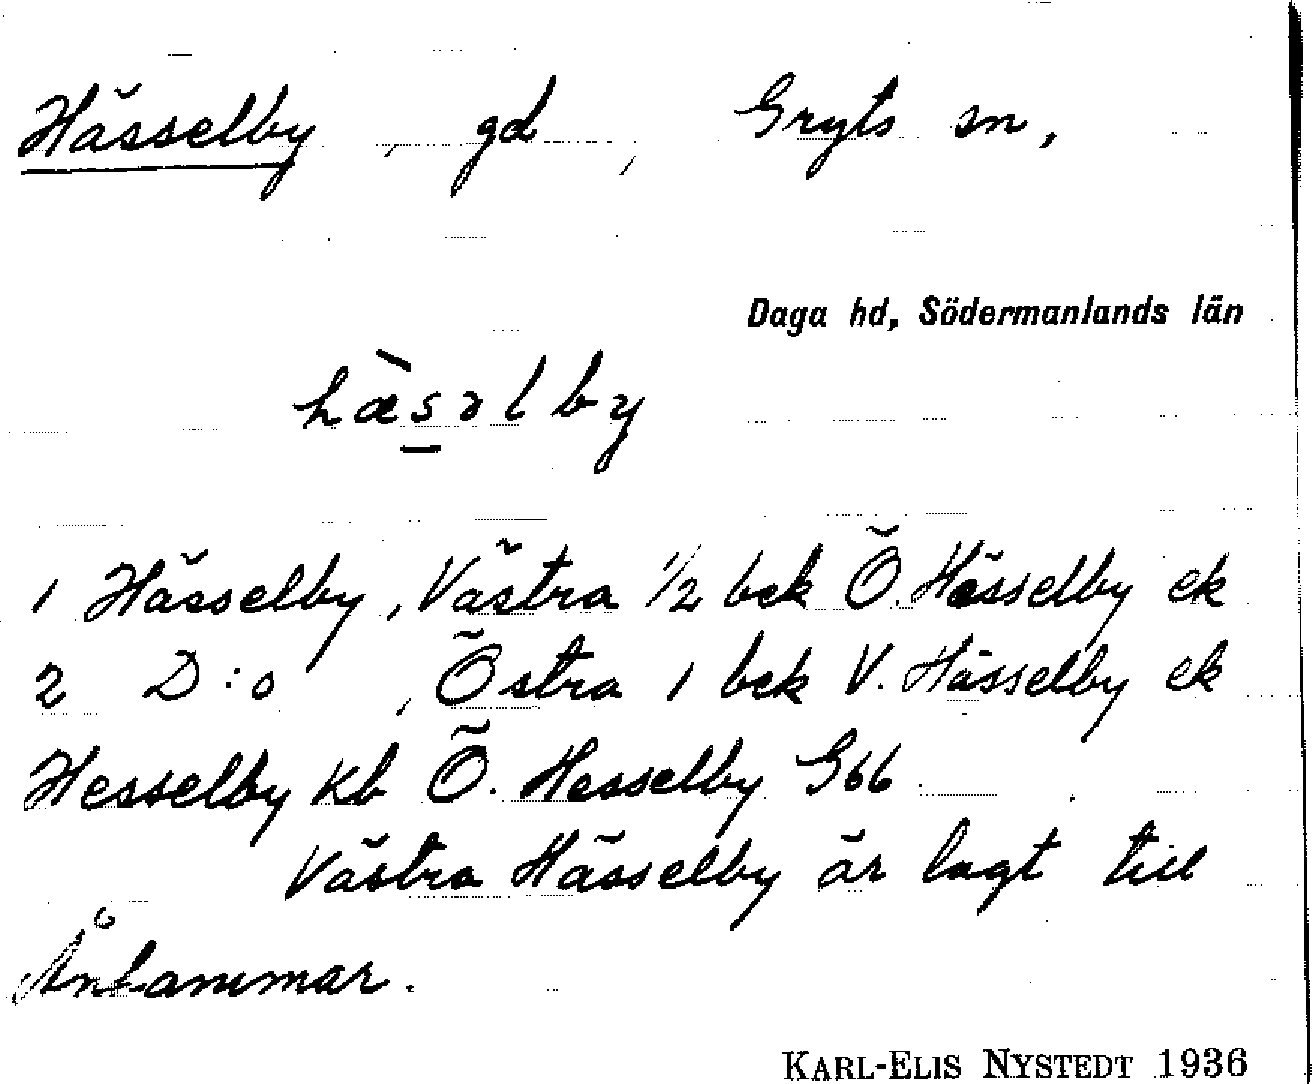 Hässelby, gd, Gryts sn,
Daga hd, Södermanlands län
hæ̀s̠əlby
1 Hässelby, Västra 1/2 bek Ö. Hässelby ek
2 D:o, Östra 1 bek V. Hässelby ek
Hesselby kb Ö. Hesselby G66
Västra Hässelby är lagt till
Ånhammar.
KARL-ELIS NYSTEDT 1936